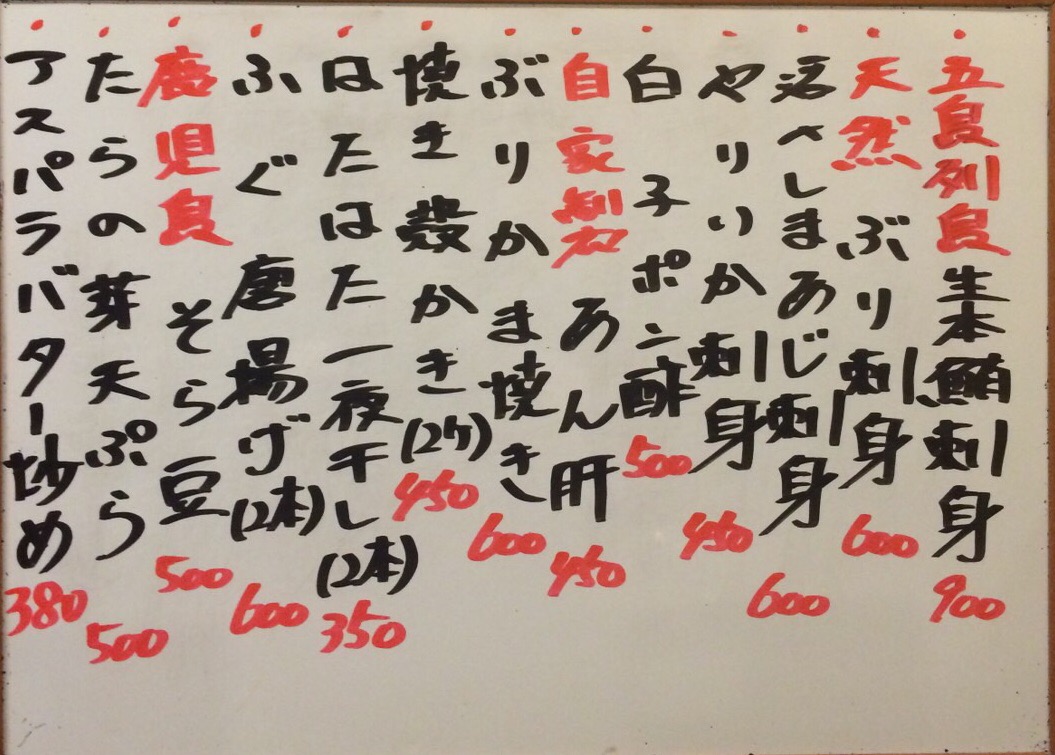 五島列島生本鮪刺身 900
天然ぶり刺身 600
活〆しまあじ刺身 600
やりいか刺身 450
白子ポン酢 500
自家製 あん肝 450
ぶりかま焼き 600
焼き殻かき(2ケ) 450
はたはた一夜干し(2本) 350
ふぐ唐揚げ(2本) 600
鹿児島そら豆 500
たらの芽天ぷら 500
アスパラバター炒め 380